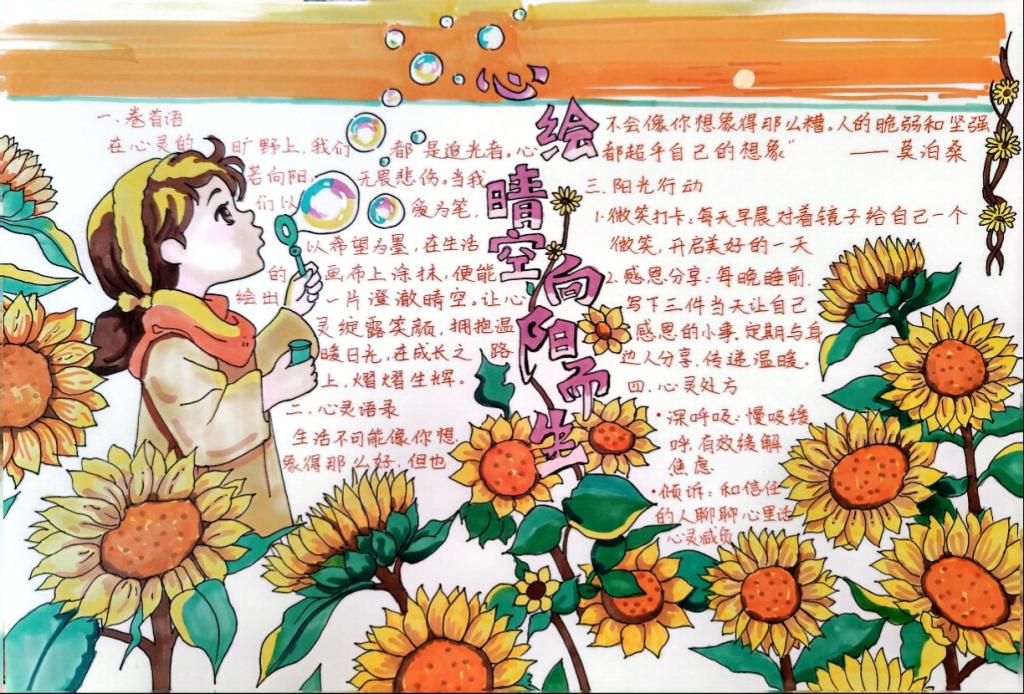 心绘晴空 向阳而生
一.卷首语
在心灵的旷野上,我们都是追光者。心
若向阳,无畏悲伤。当我
们以爱为笔,
以希望为墨,在生活
的画布上涂抹,便能
绘出一片澄澈晴空。让心
灵绽露笑颜,拥抱温
暖日光,在成长之路
上,熠熠生辉。
二.心灵语录
生活不可能像你想
象得那么好,但也
不会像你想象得那么糟。人的脆弱和坚强
都超乎自己的想象"
——莫泊桑
三.阳光行动
1.微笑打卡:每天早晨对着镜子给自己一个
微笑,开启美好的一天
2.感恩分享:每晚睡前,
写下三件当天让自己
感恩的小事。定期与身
边人分享,传递温暖。
四.心灵处方
·深呼吸:慢吸缓
呼,有效缓解
焦虑
·倾诉:和信任
的人聊聊心里话
心灵减负